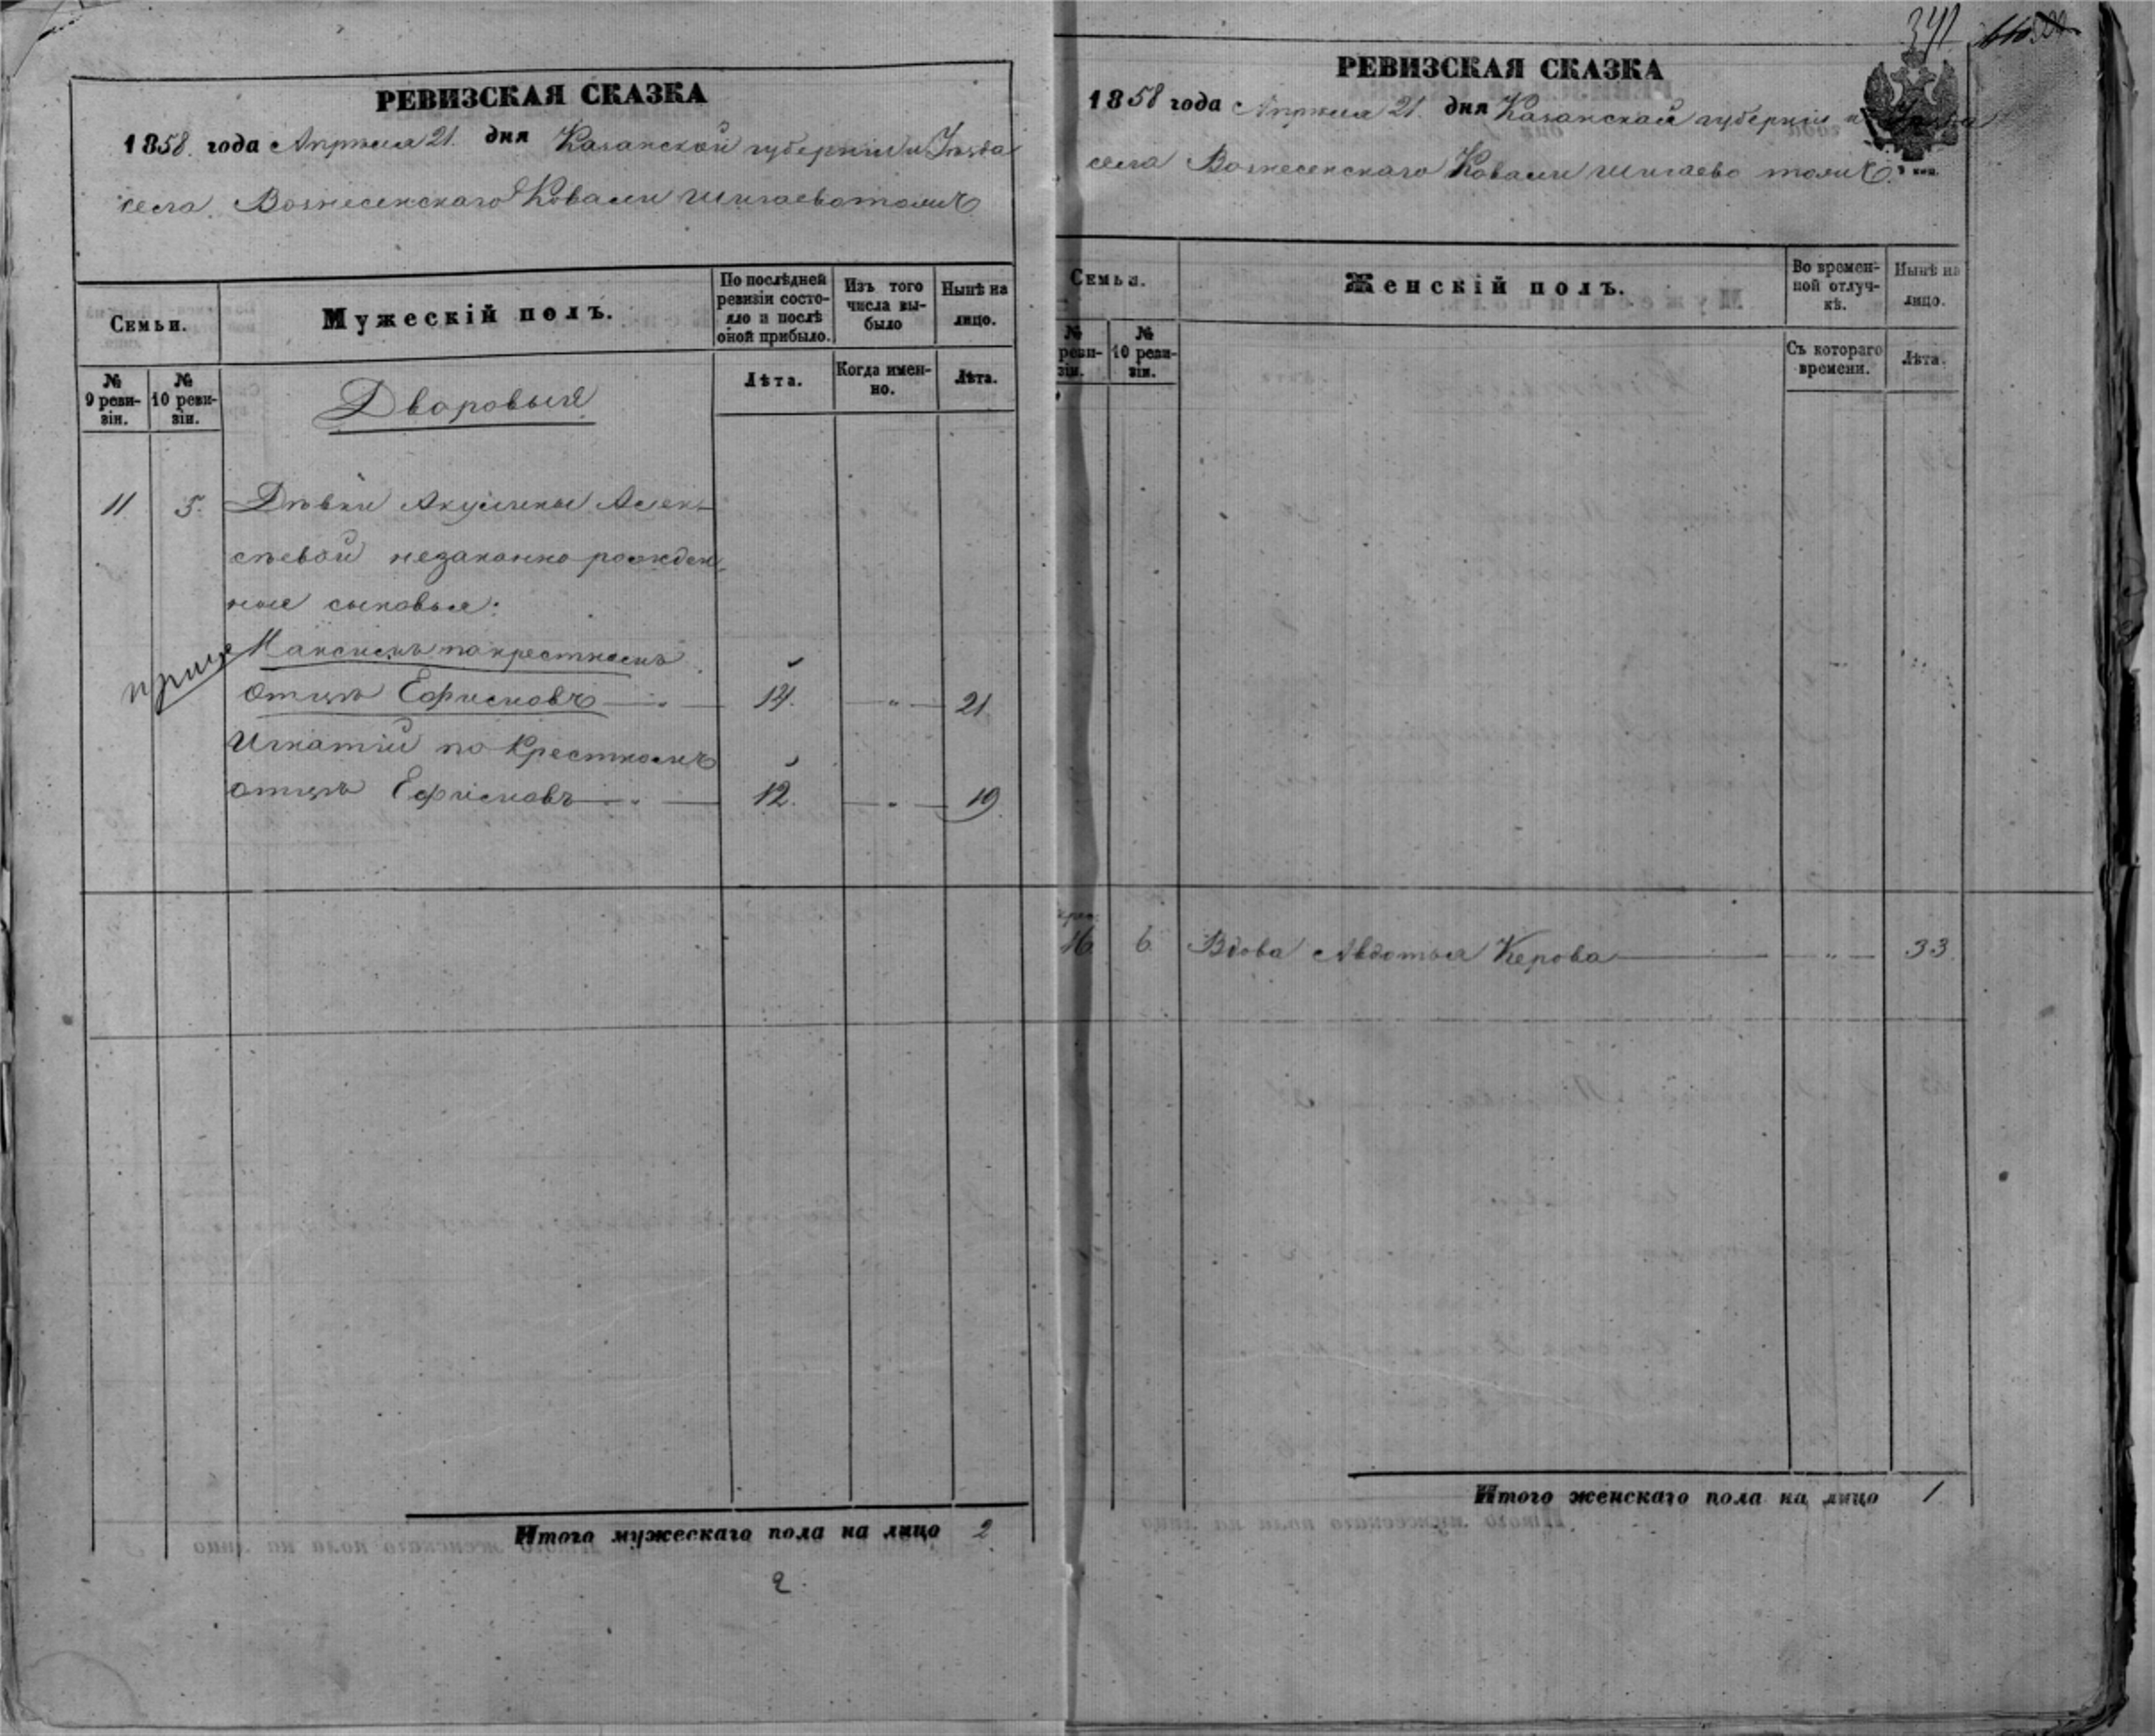 РЕВИЗСКАЯ СКАЗКА
1858. года Апрѣля 21. дня Казанской губерніи и Уѣзда
села Вознесенскаго Ковали Шигаево тожъ
Семьи.
Мужескій полъ.
По послѣдней ревизіи состояло и послѣ оной прибыло.
Изъ того числа выбыло
Нынѣ на лицо.
№ 9 ревизіи.
№ 10 ревизіи.
Дворовыя
Лѣта.
Когда именно.
Лѣта.
11. 5. Дѣвки Акулины Алек-
сѣевой незаконно рожден-
ные сыновья:
Максимъ по крестномъ
отцѣ Ефимовъ 14. " 21
Игнатій по крестномъ
отцѣ Ефимовъ 12. " 19.
Итого мужескаго пола на лицо 2
2.
341
РЕВИЗСКАЯ СКАЗКА
1858 года Апрѣля 21. дня Казанской губерніи и Уѣзда
села Вознесенскаго Ковали Шигаево тожъ.
Семьи.
Женскій полъ.
Во временной отлучкѣ.
Нынѣ на лицо.
№ ревизіи.
№ 10 ревизіи.
Съ котораго времени.
Лѣта.
16. 6. Вдова Авдотья Керова " 33.
Итого женскаго пола на лицо 1